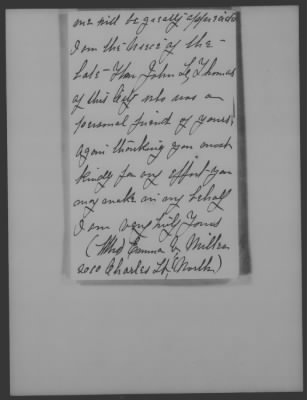 one will be greatly appreciated
I am the niece of the
late Hon John L, Thomas
of this City who was a
personal friend of yours,
again thanking you most
kindly for any effort you
may make in my behalf
I am very truly Yours
(Mrs) Emma V
2010 Charles St, (North)